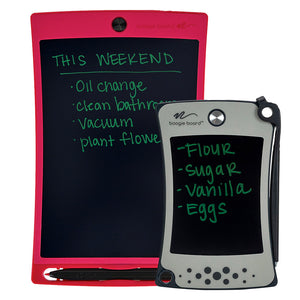 THIS WEEKEND
· Oil change
· clean bathroom
· Vacuum
· plant flowe
boogie board
- Flour
- Sugar
- Vanilla
- Eggs